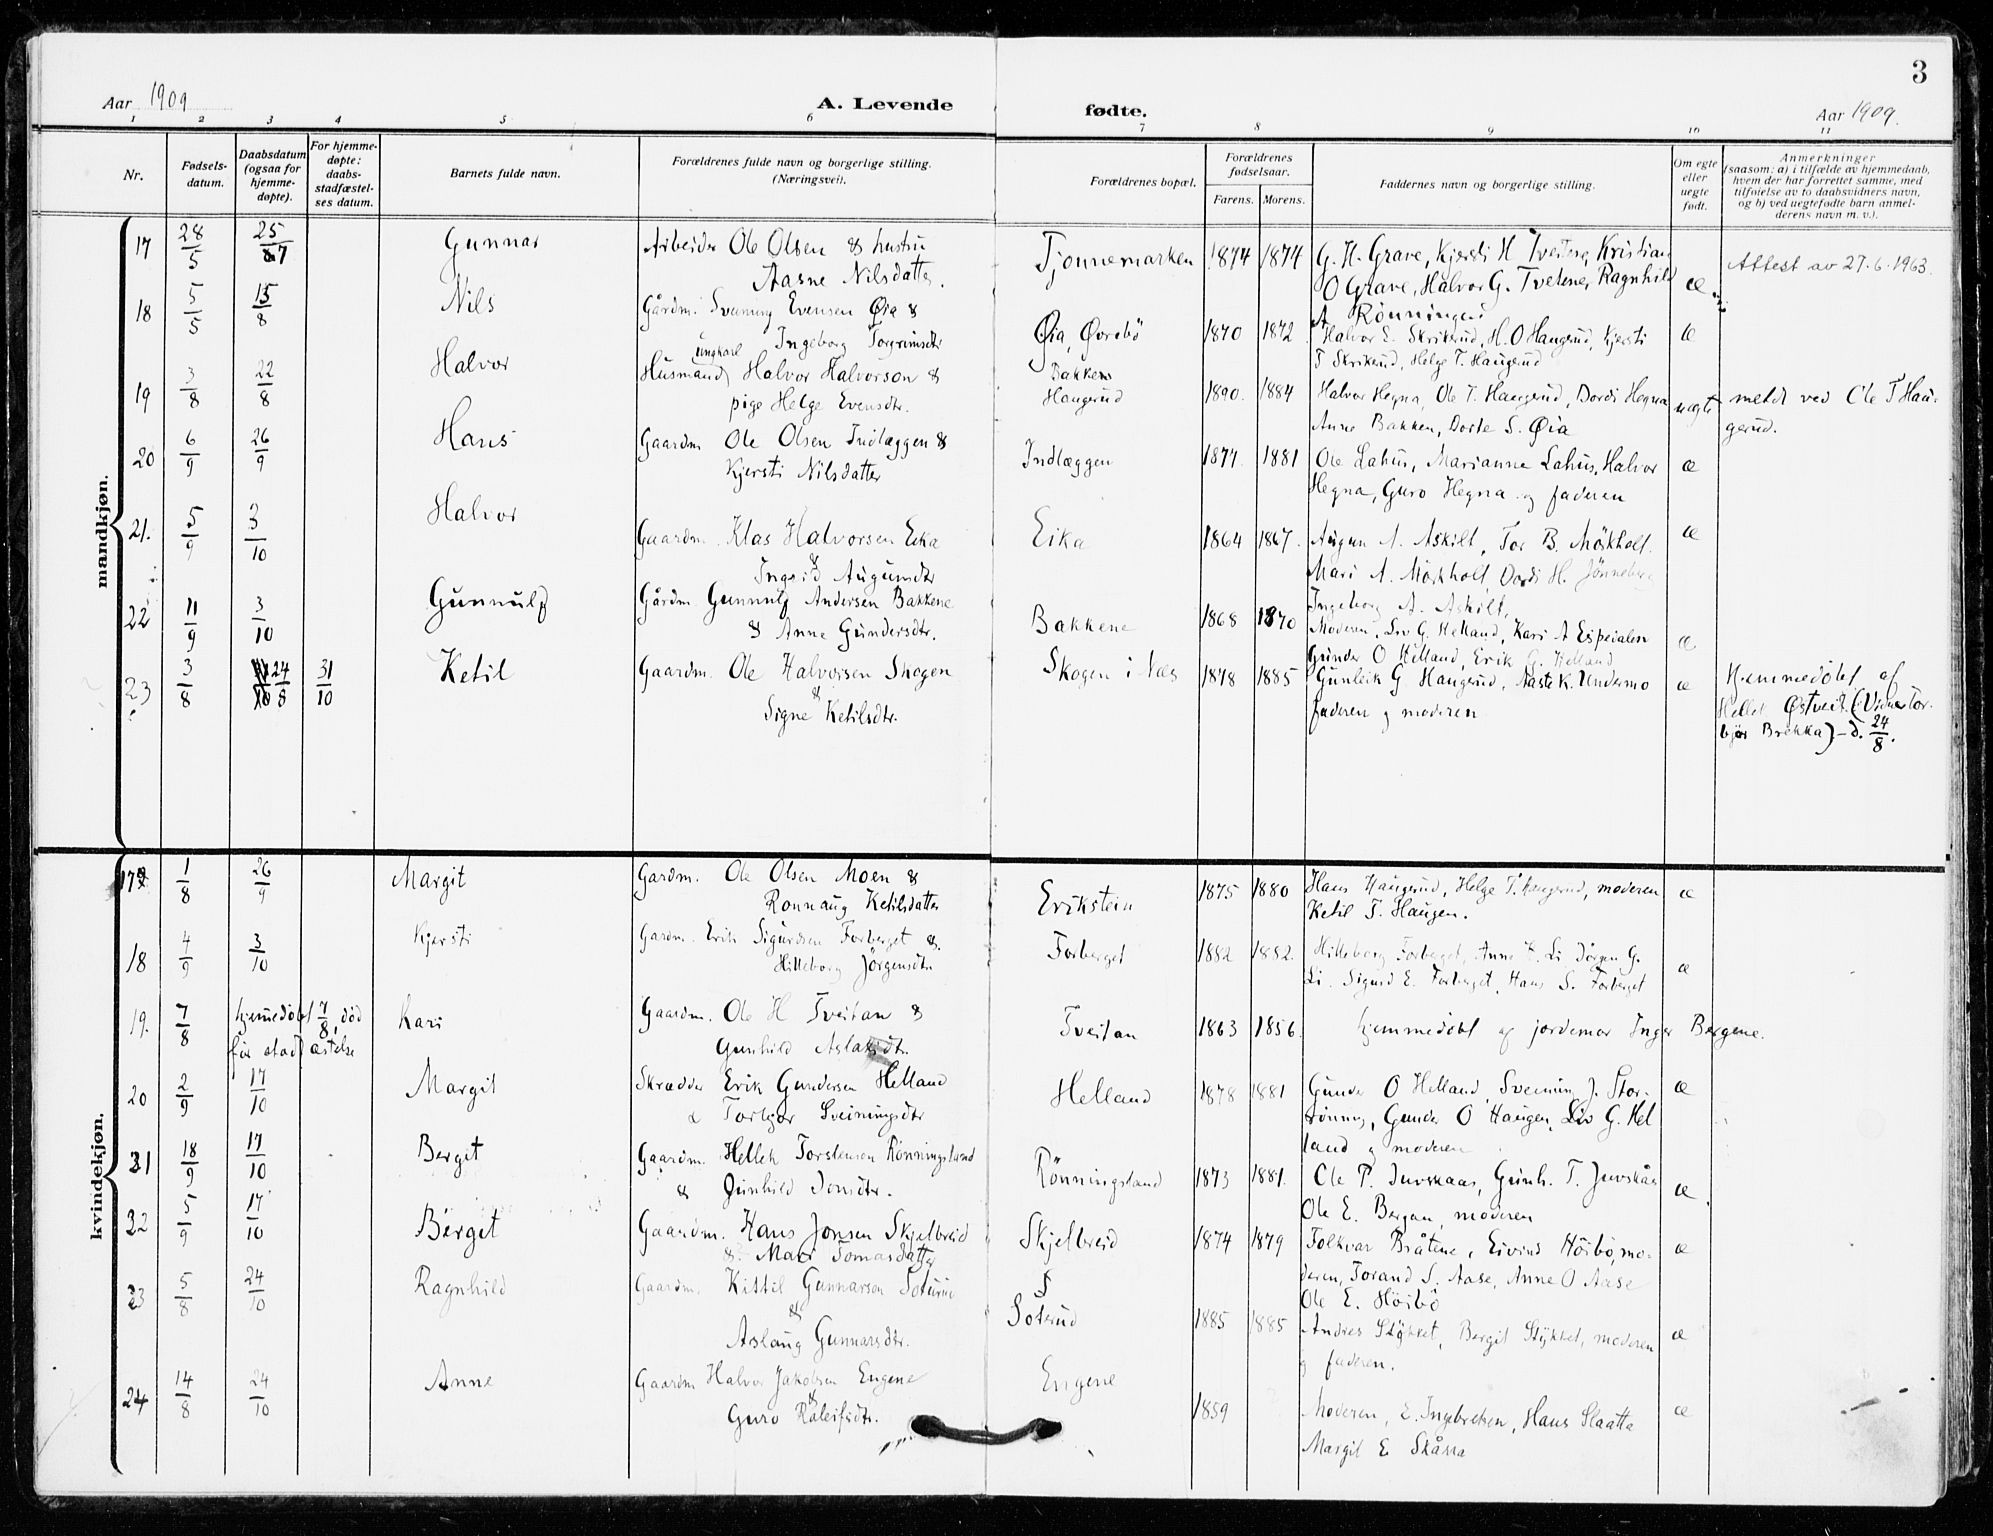 3
Aar 1909
A. Levende
fødte.
Aar 1909.
1 2 3 4 5 6 7 8 9 10 11
Nr.
Fødsels-
datum.
Daabsdatum
(ogsaa for
hjemme-
døpte).
For hjemme-
døpte:
daabs-
stadfæstel-
ses datum.
Barnets fulde navn.
Forældrenes fulde navn og borgerlige stilling.
(Næringsvei).
Forældrenes bopæl.
Forældrenes
fødselsaar.
Farens. Morens.
Faddernes navn og borgerlige stilling.
Om egte
eller
uegte
født.
Anmerkninger
(saasom: a) i tilfælde av hjemmedaab,
hvem der har forrettet samme, med
tilføielse av to daabsvidners navn,
og b) ved uegtefødte barn anmel-
derens navn m. v.).
mandkjøn.
17 28/5 25/7 Gunnar Arbeider Ole Olsen & hustru
Aasne Nilsdatter.
Tjonnemarken 1874 1874 G. H. Grave, Kjersti H Tveitene, Kristian
O Grave, Halvor G. Tvetene, Ragnhild
A Rönningen
æ
Attest av 27.6.1963.
18 5/5 15/8 Nils Gårdm. Sveinung Evensen Øia &
Ingeborg Torgrimsdtr
Øia, Øvrebö 1870 1872 Halvor E. Skrikerud, H. O Haugerud, Kjersti
T Skrikerud, Helge T. Haugerud
æ
19 3/8 22/8 Halvor ungkarl
Husmand Halvor Halvorson &
pige Helge Evensdtr.
Bakken
Haugerud 1890. 1884 Halvor Hegna, Ole T. Haugerud, Dordi Hegna
Anne Bakken, Dorte S. Øia
uegte
meldt ved Ole T Hau-
gerud.
20 6/9 26/9 Hans Gaardm Ole Olsen Indlæggen &
Kjersti Nilsdatter
Indlæggen 1877. 1881 Ole Lahus, Marianne Lahus, Halvor
Hegna, Guro Hegna og faderen
æ
21. 5/9 3/10 Halvor Gaardm. Klas Halvorsen Eika
&
Ingrid Augunsdtr
Eika 1864 1867. Augun A. Askilt, Tor B. Mörkholt.
Mari A. Mörkholt, Dordi H. Jönneberg
Ingeborg A. Askilt,
æ
22 11/9 3/10 Gunnulf Gårdm Gunnulf Andersen Bakkene
& Anne Gundersdtr.
Bakkene 1868 1870 Moderen, Liv G. Helland, Kari A Espeialen
Gunder O Helland, Erik G. Helland
æ
23 3/8 24/8 31/10 Ketil Gaardm. Ole Halvorsen Skogen
&
Signe Ketilsdtr.
Skogen i Næs 1878 1885 Gunleik G. Haugerud, Aaste K. Undermo
faderen og moderen.
æ
Hjemmedöbt af
Hellek Østveit (Vidner Tor-
björ Brekka) - d. 24/8.
kvindekjøn.
17 1/8 26/9 Margit Gardm. Ole Olsen Moen &
Ronnaug Ketilsdatter
Erikstein 1875 1880 Hans Haugerud, Helge T. Haugerud, moderen
Ketil T. Haugen.
æ
18 4/9 3/10 Kjersti Gardm. Erik Sigurdsen Forberget &
Hilleborg Jörgensdtr.
Forberget 1882 1882. Hilleborg Forberget, Anne E. Li Jörgen G.
Li. Sigurd E. Forberget, Hans S. Forberget
æ
19. 7/8 hjemedöbt 7/8, död
för stadfæstelse
Kari Gaardm. Ole H Tveitan &
Gunhild Aslaksdtr.
Tveitan 1863 1856. hjemmedöbt af jordemor Inger Bergene.
20 2/9 17/10 Margit Skrædder Erik Gundersen Helland
& Torbjør Sveinungsdtr
Helland 1878 1881 Gunder O Helland, Sveinung J. Stor-
rönning, Gunder O Haugen, Liv G. Hel
land og moderen
æ
21 18/9 17/10 Berget Gaardm. Hellek Torstensen Rönningsland
& Gunhild Jonsdtr.
Rönningsland 1873 1881. Ole P. Juvskaas, Gunh. T. Juvskås
Ole E. Bergan, moderen
æ
22 5/9 17/10 Berget Gaardm. Hans Jonsen Skjelbreid
& Mari Tomasdatter
Skjelbreid 1874 1879 Folkvar Bråtene, Eivind Höibö, mo-
deren, Torand S. Aase, Anne O Aase
Ole E. Höibö
æ
23 5/8 24/10 Ragnhild Gaardm. Kittil Gunnarson Soterud
&
Aslaug Gunnarsdtr.
Soterud 1885 1885 Andres Stykket, Bergit Stykket, moderen
og faderen.
æ
24 14/8 24/10 Anne Gaardm Halvor Jakobsen Engene
&
Guro
Engene 1859 Moderen, E. Ingebretsen, Hans Slaatta
Margit E Skåra
æ